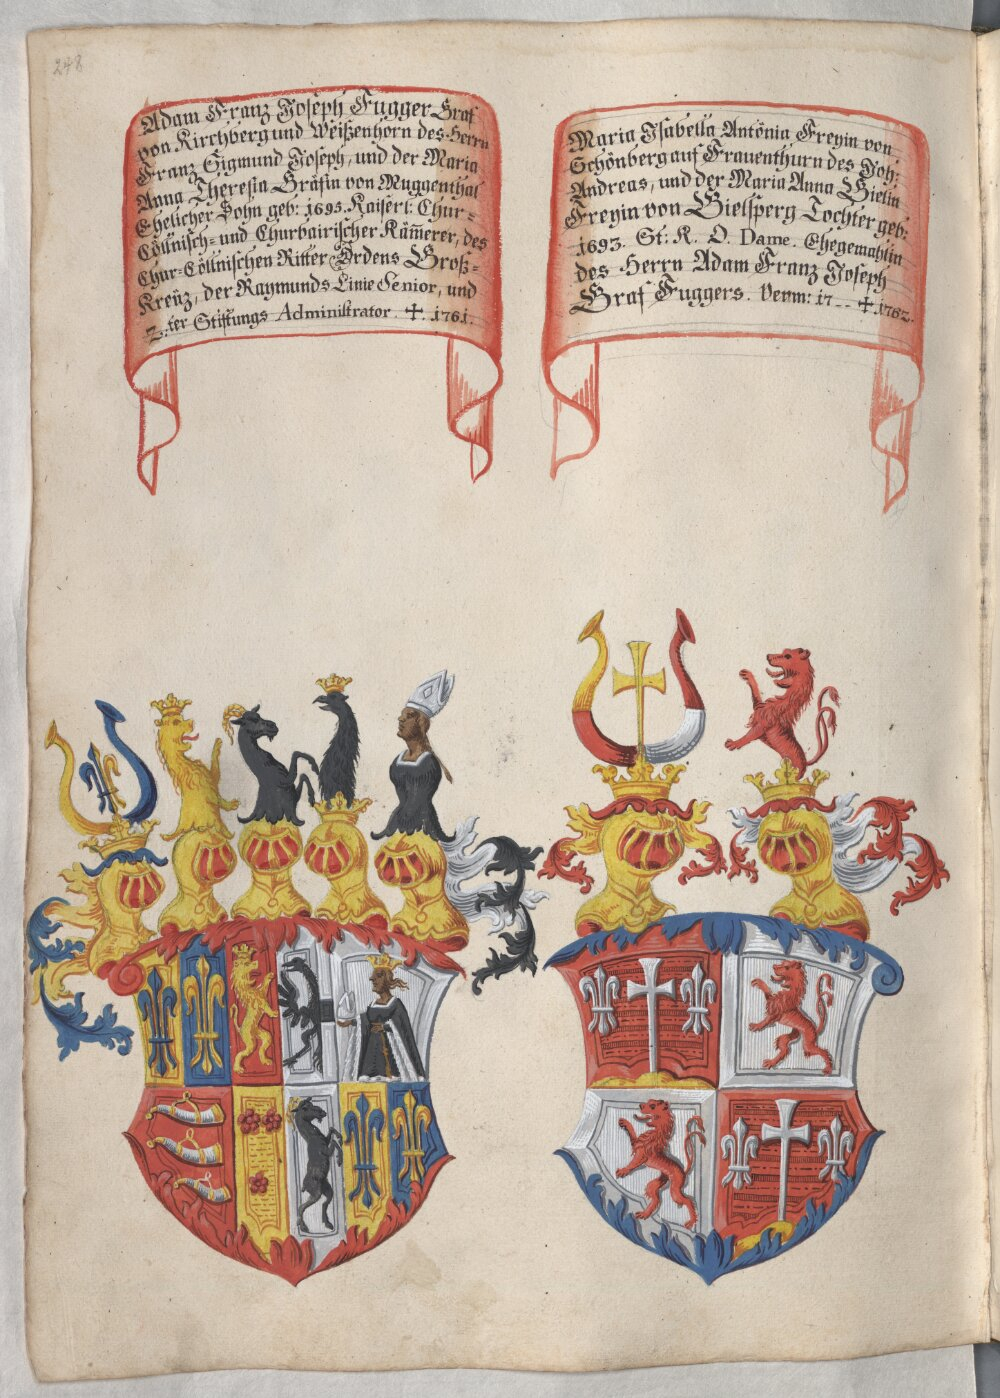 248
Adam Franz Joseph Fugger Graf
von Kirchberg und Weißenhorn des Herrn
Franz Sigmund Joseph, und der Maria
Anna Theresia Gräfin von Muggenthal
Ehelicher Sohn geb: 1695. Kaiserl: Chur-
Cöllnisch- und Churbairischer Kam̄erer, des
Chur-Cöllnischen Ritter Ordens Groß-
Kreüz, der Raymunds Linie Senior, und
2.ter Stiftungs Administrator. ✝. 1761.
Maria Isabella Antonia Freyin von
Schönberg auf Frauenthurn des Joh:
Andreas, und der Maria Anna Gielin
Freyin von Gielsperg Tochter geb:
1693. St: K. O. Dame. Ehegemahlin
des Herrn Adam Franz Joseph
Graf Fuggers. Verm: 17-- ✝ 1762.